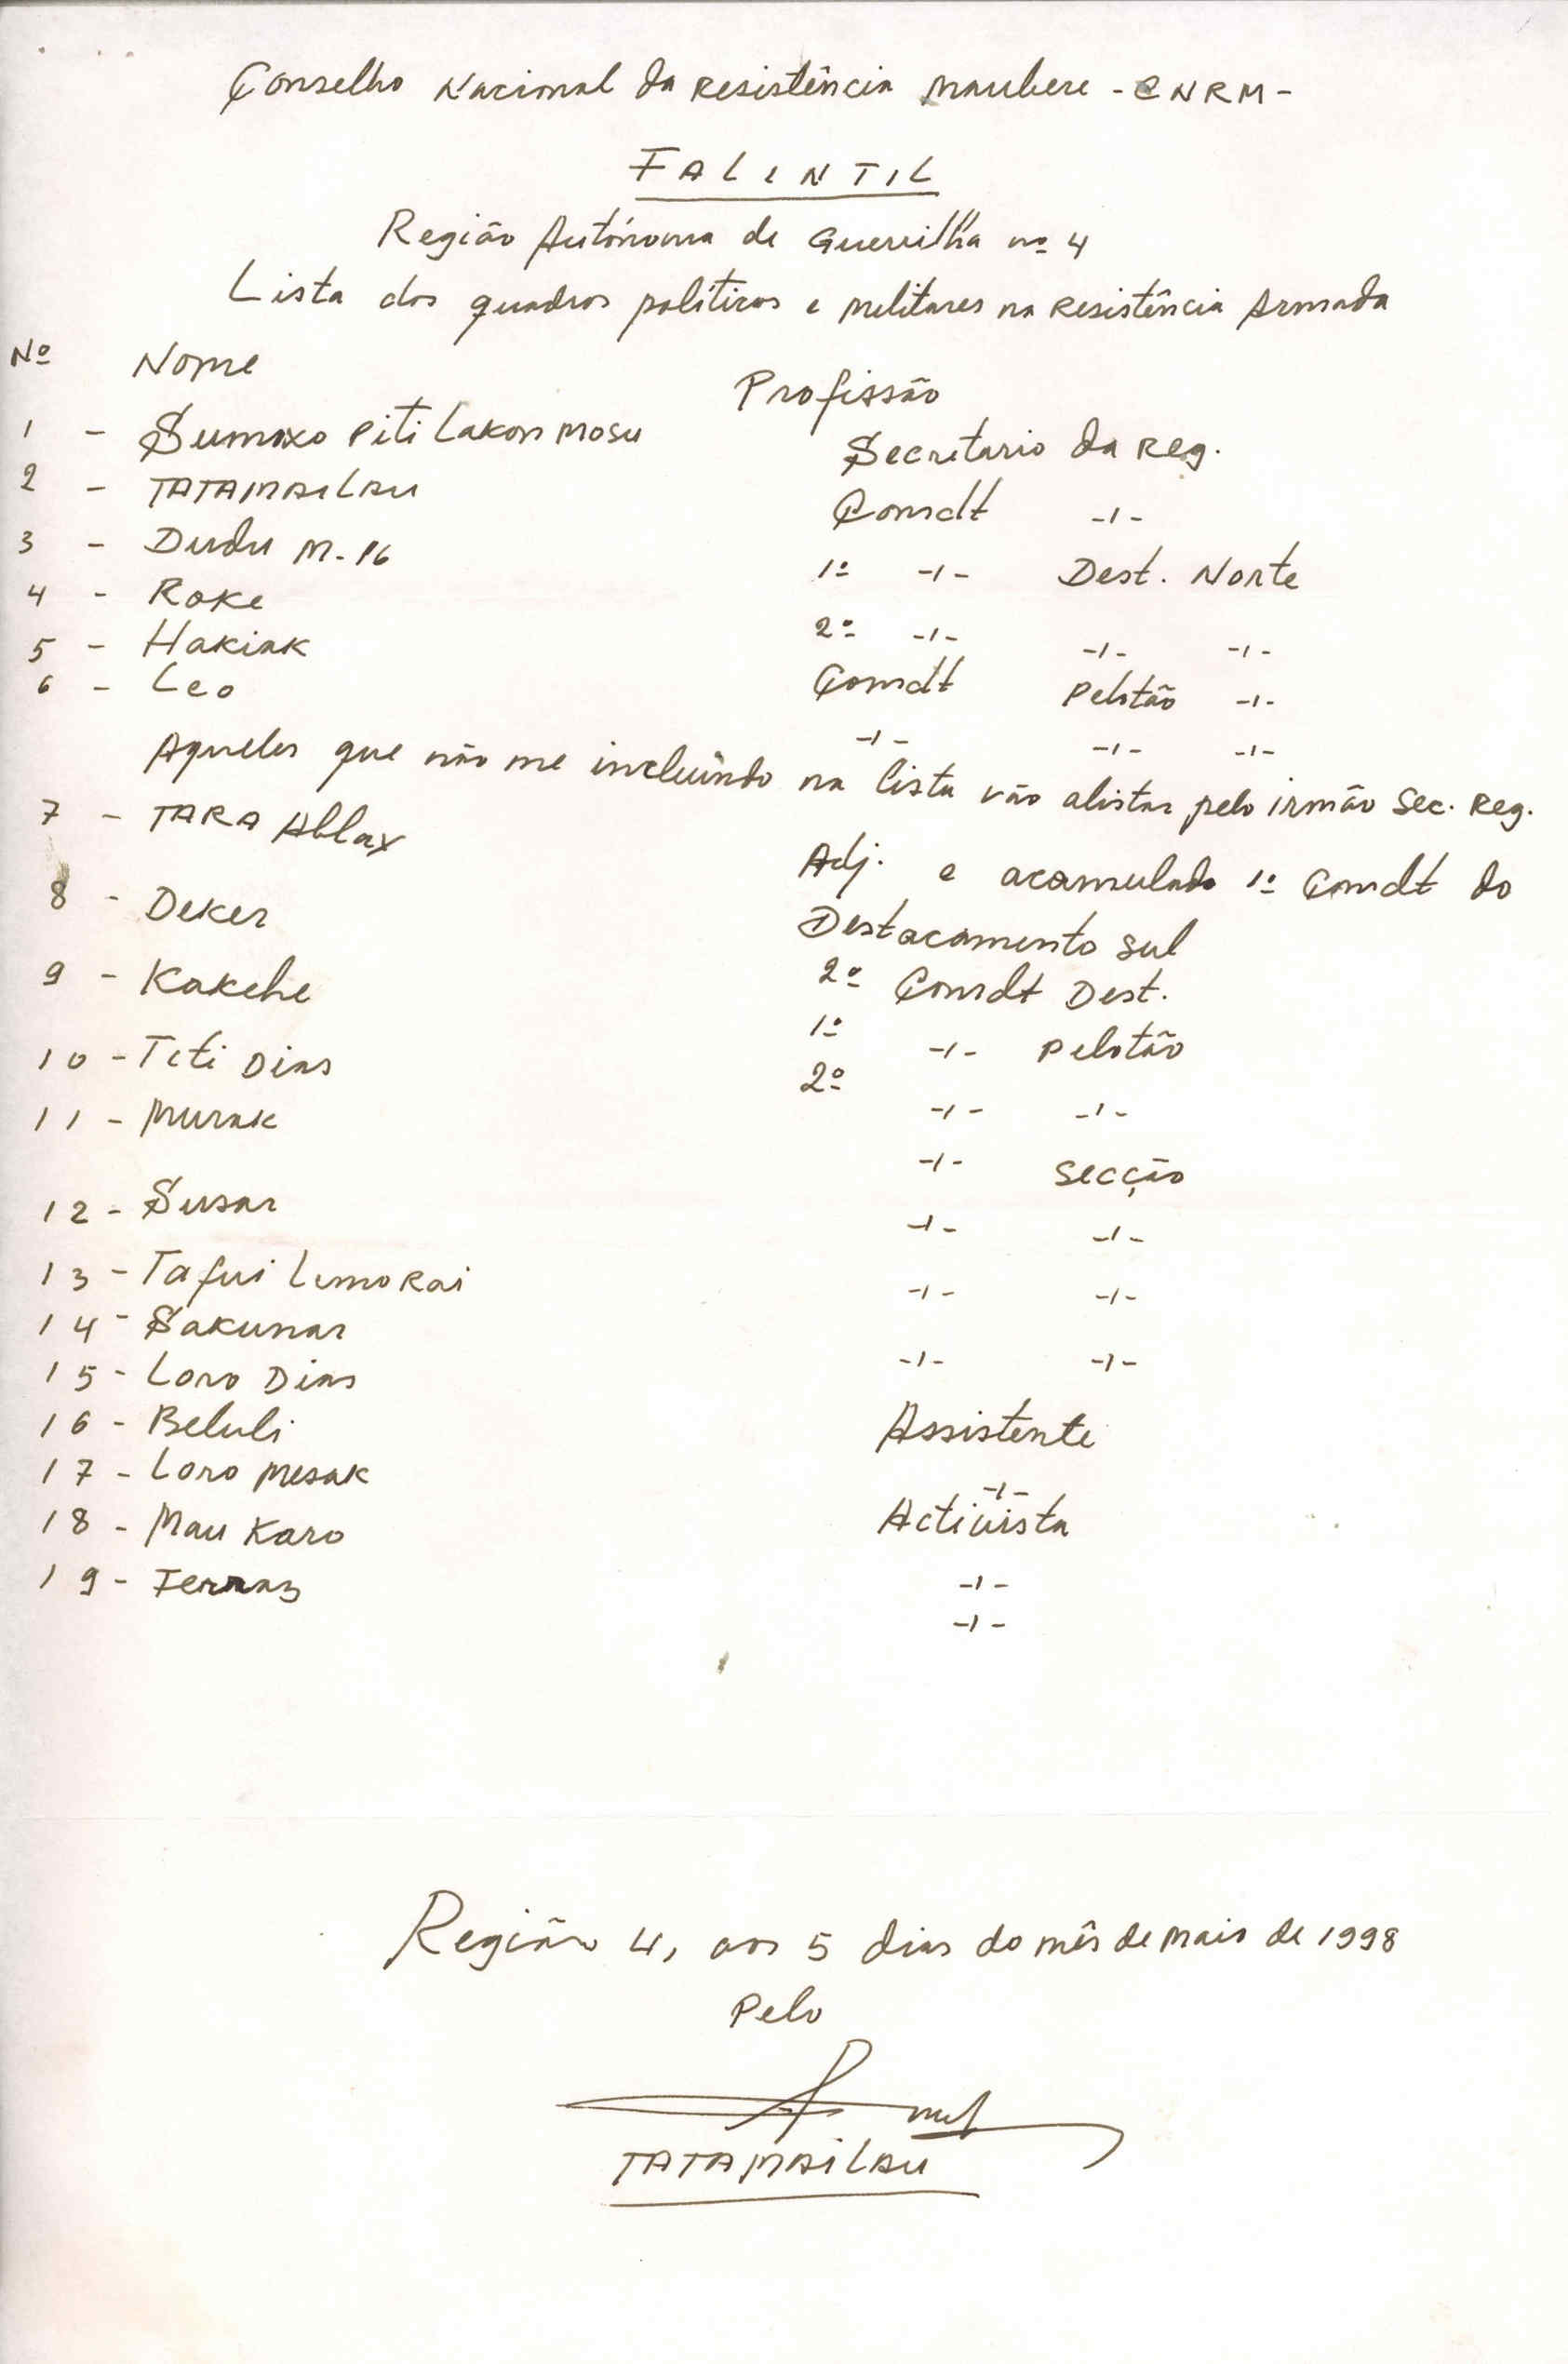 Conselho Nacional da Resistência Maubere - CNRM -
FALINTIL
Região Autónoma de Guerrilha nº 4
Lista dos quadros políticos e militares na Resistência Armada
Nº Nome Profissão
1 - Sumoxo Piti Lakon Mosu Secretario da Reg.
2 - TATAMAILAU Comdt -/-
3 - Dudu M-16 1º -/- Dest. Norte
4 - Roke 2º -/- -/- -/-
5 - Hakiak Comdt Pelotão -/-
6 - Leo -/- -/- -/-
Aqueles que não me incluindo na lista vão alistar pelo irmão Sec. Reg.
7 - TARA Ablax Adj. e acamulado 1º Comdt do
Destacamento sul
8 - Deker 2º Comdt Dest.
9 - Kakehe 1º -/- Pelotão
10 - Teti Dias 2º -/- -/-
11 - Murak -/- Secção
12 - Susar -/- -/-
13 - Tafui Lemorai -/- -/-
14 - Sakunar -/- -/-
15 - Loro Dias Assistente
16 - Beluli -/-
17 - Loro Mesak Activista
18 - Mau Karo -/-
19 - Ferraz -/-
Região 4, aos 5 dias do mês de Maio de 1998
Pelo
TATAMAILAU